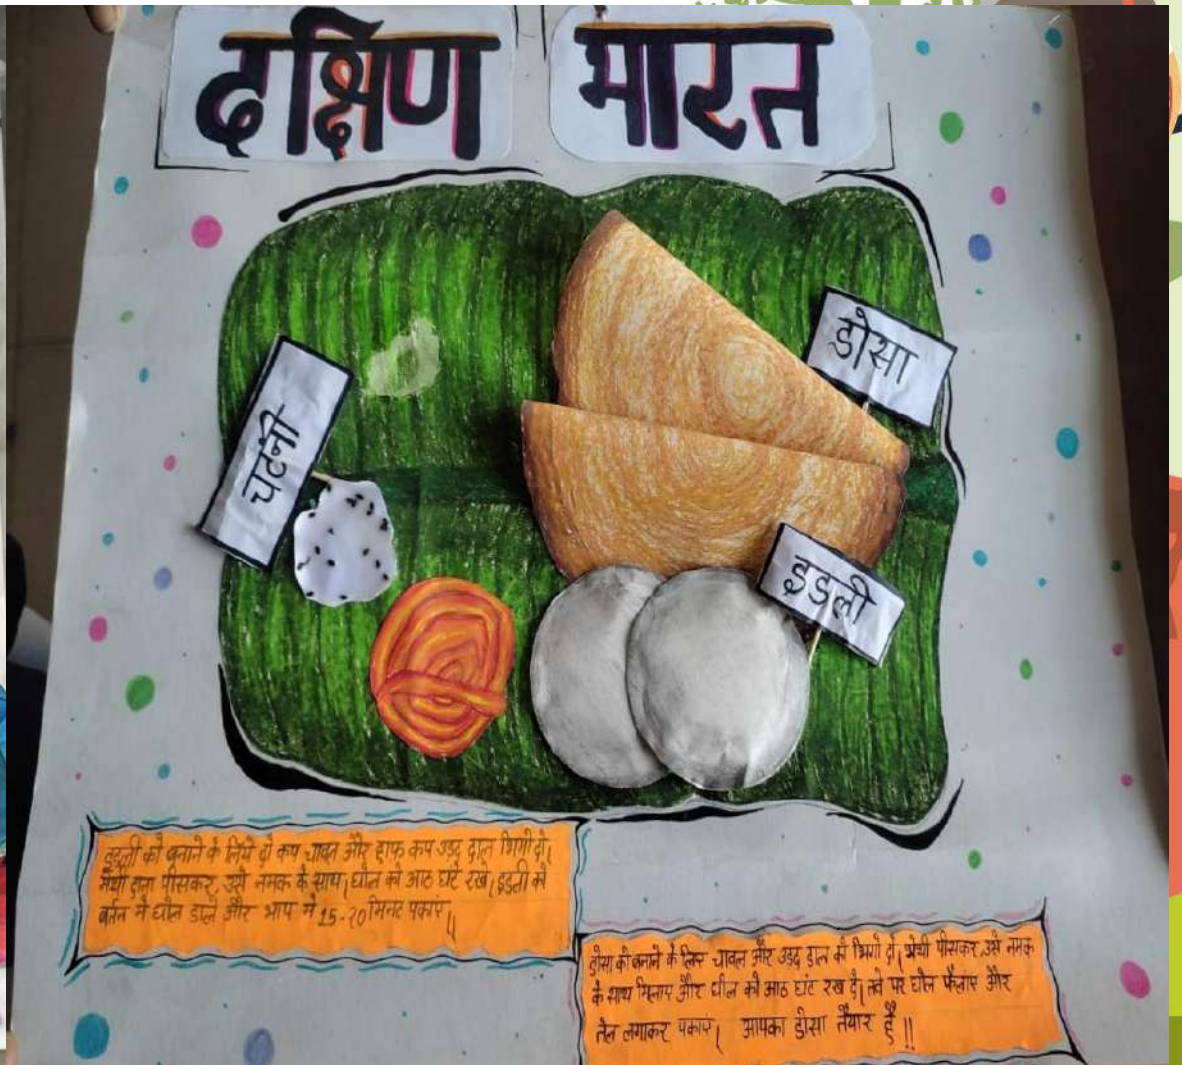 दक्षिण भारत
डोसा
चटनी
इडली
इडली को बनाने के लिये दो कप चावल और हाफ कप उड़द दाल भिगो दो।
मेथी दाना पीसकर, उसे नमक के साथ। घोल को आठ घंटे रखे। इडली को
बर्तन मे घोल डाले और भाप मे 15-20 मिनट पकाएं॥
डोसा को बनाने के लिए चावल और उड़द दाल को भिगो दो। मेथी पीसकर उसे नमक
के साथ मिलाए और घोल को आठ घंटे रख दे। तवे पर घोल फैलाए और
तेल लगाकर पकाएं। आपका डोसा तैयार है!!